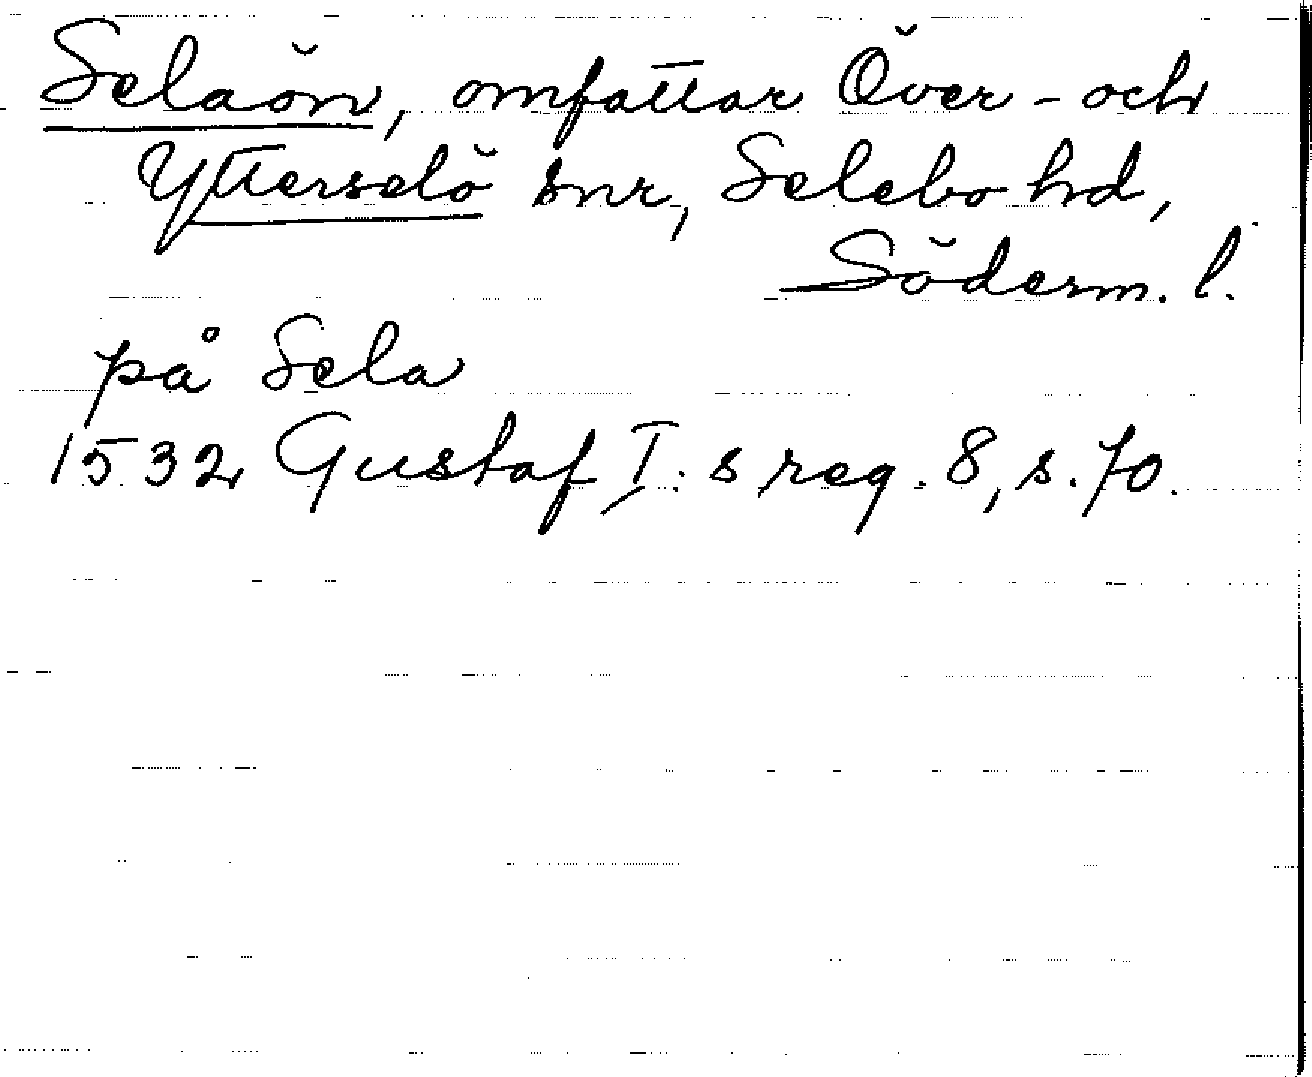 Selaön, omfattar Över- och
Ytterselö snr, Selebo hd,
Söderm. l.
på Sela
1532 Gustaf I:s reg. 8, s. 70.